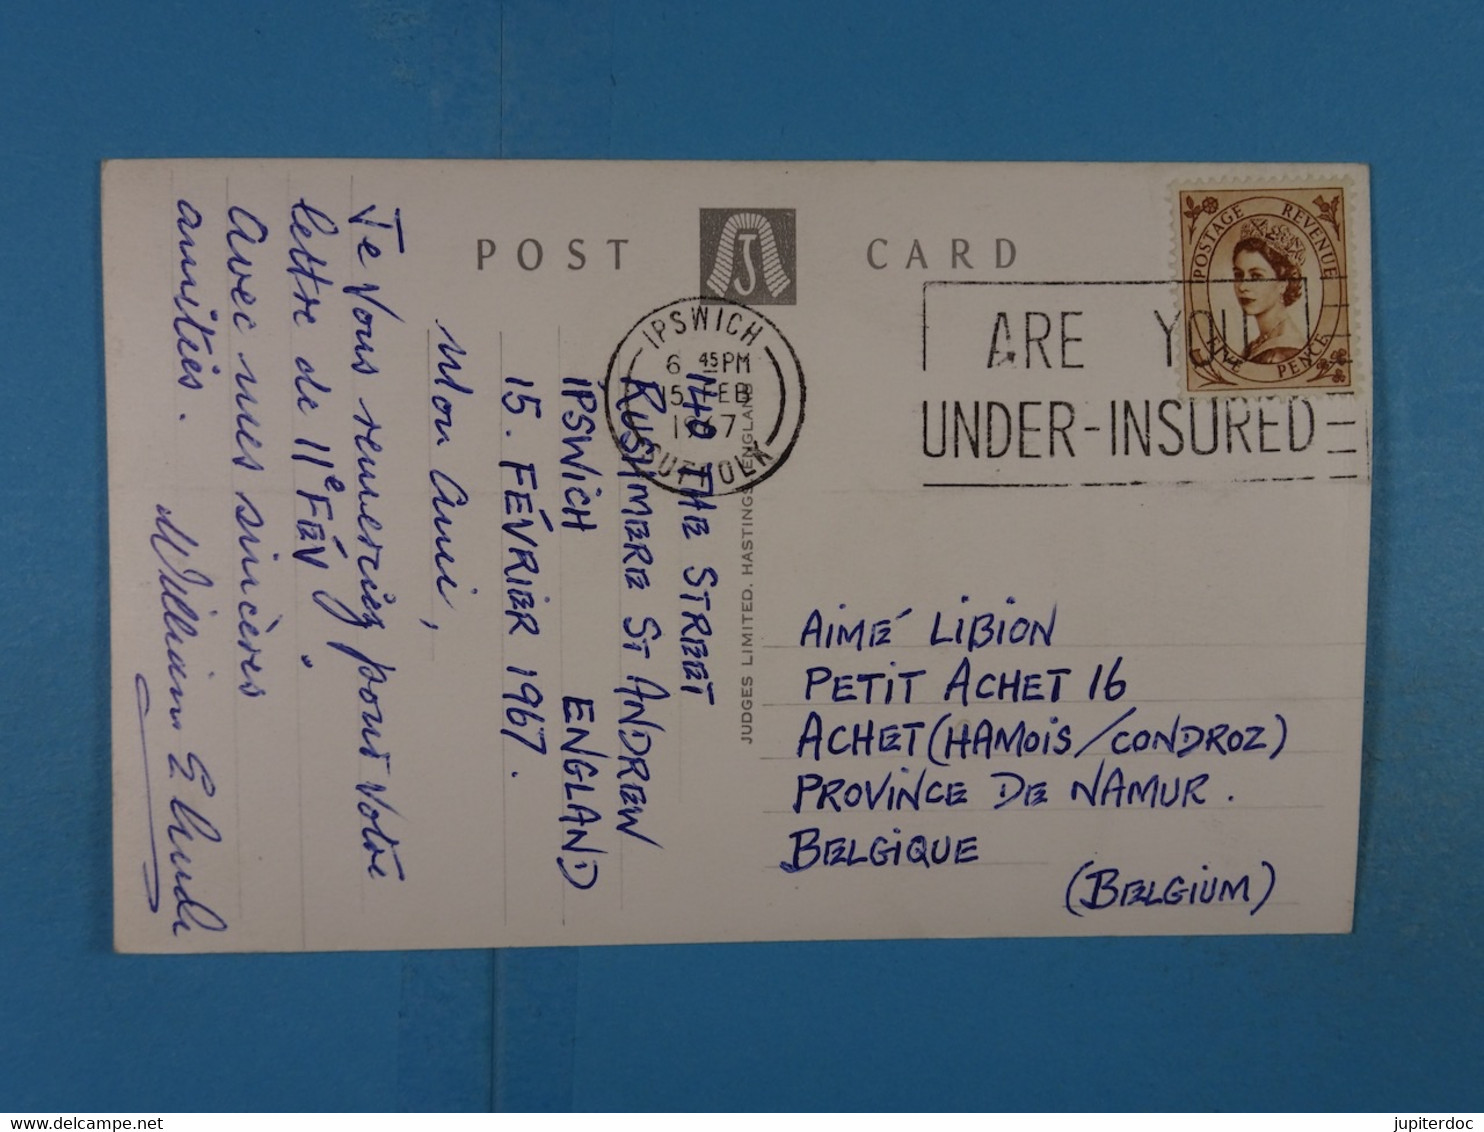 POST CARD
J
IPSWICH
6 45PM
15 FEB
1967
SUFFOLK
ARE YOU
UNDER-INSURED
POSTAGE REVENUE
FIVE PENCE
140 THE STREET
RUSHMERE ST ANDREW
IPSWICH ENGLAND
15. FÉVRIER 1967.
Mon Ami,
Je Vous remerciez pour votre
lettre de 11e FÉV.
Avec mes sincères
amitiés.
William E
JUDGES LIMITED. HASTINGS, ENGLAND
AIMÉ LIBION
PETIT ACHET 16
ACHET (HAMOIS/CONDROZ)
PROVINCE DE NAMUR.
BELGIQUE
(BELGIUM)
jupiterdoc